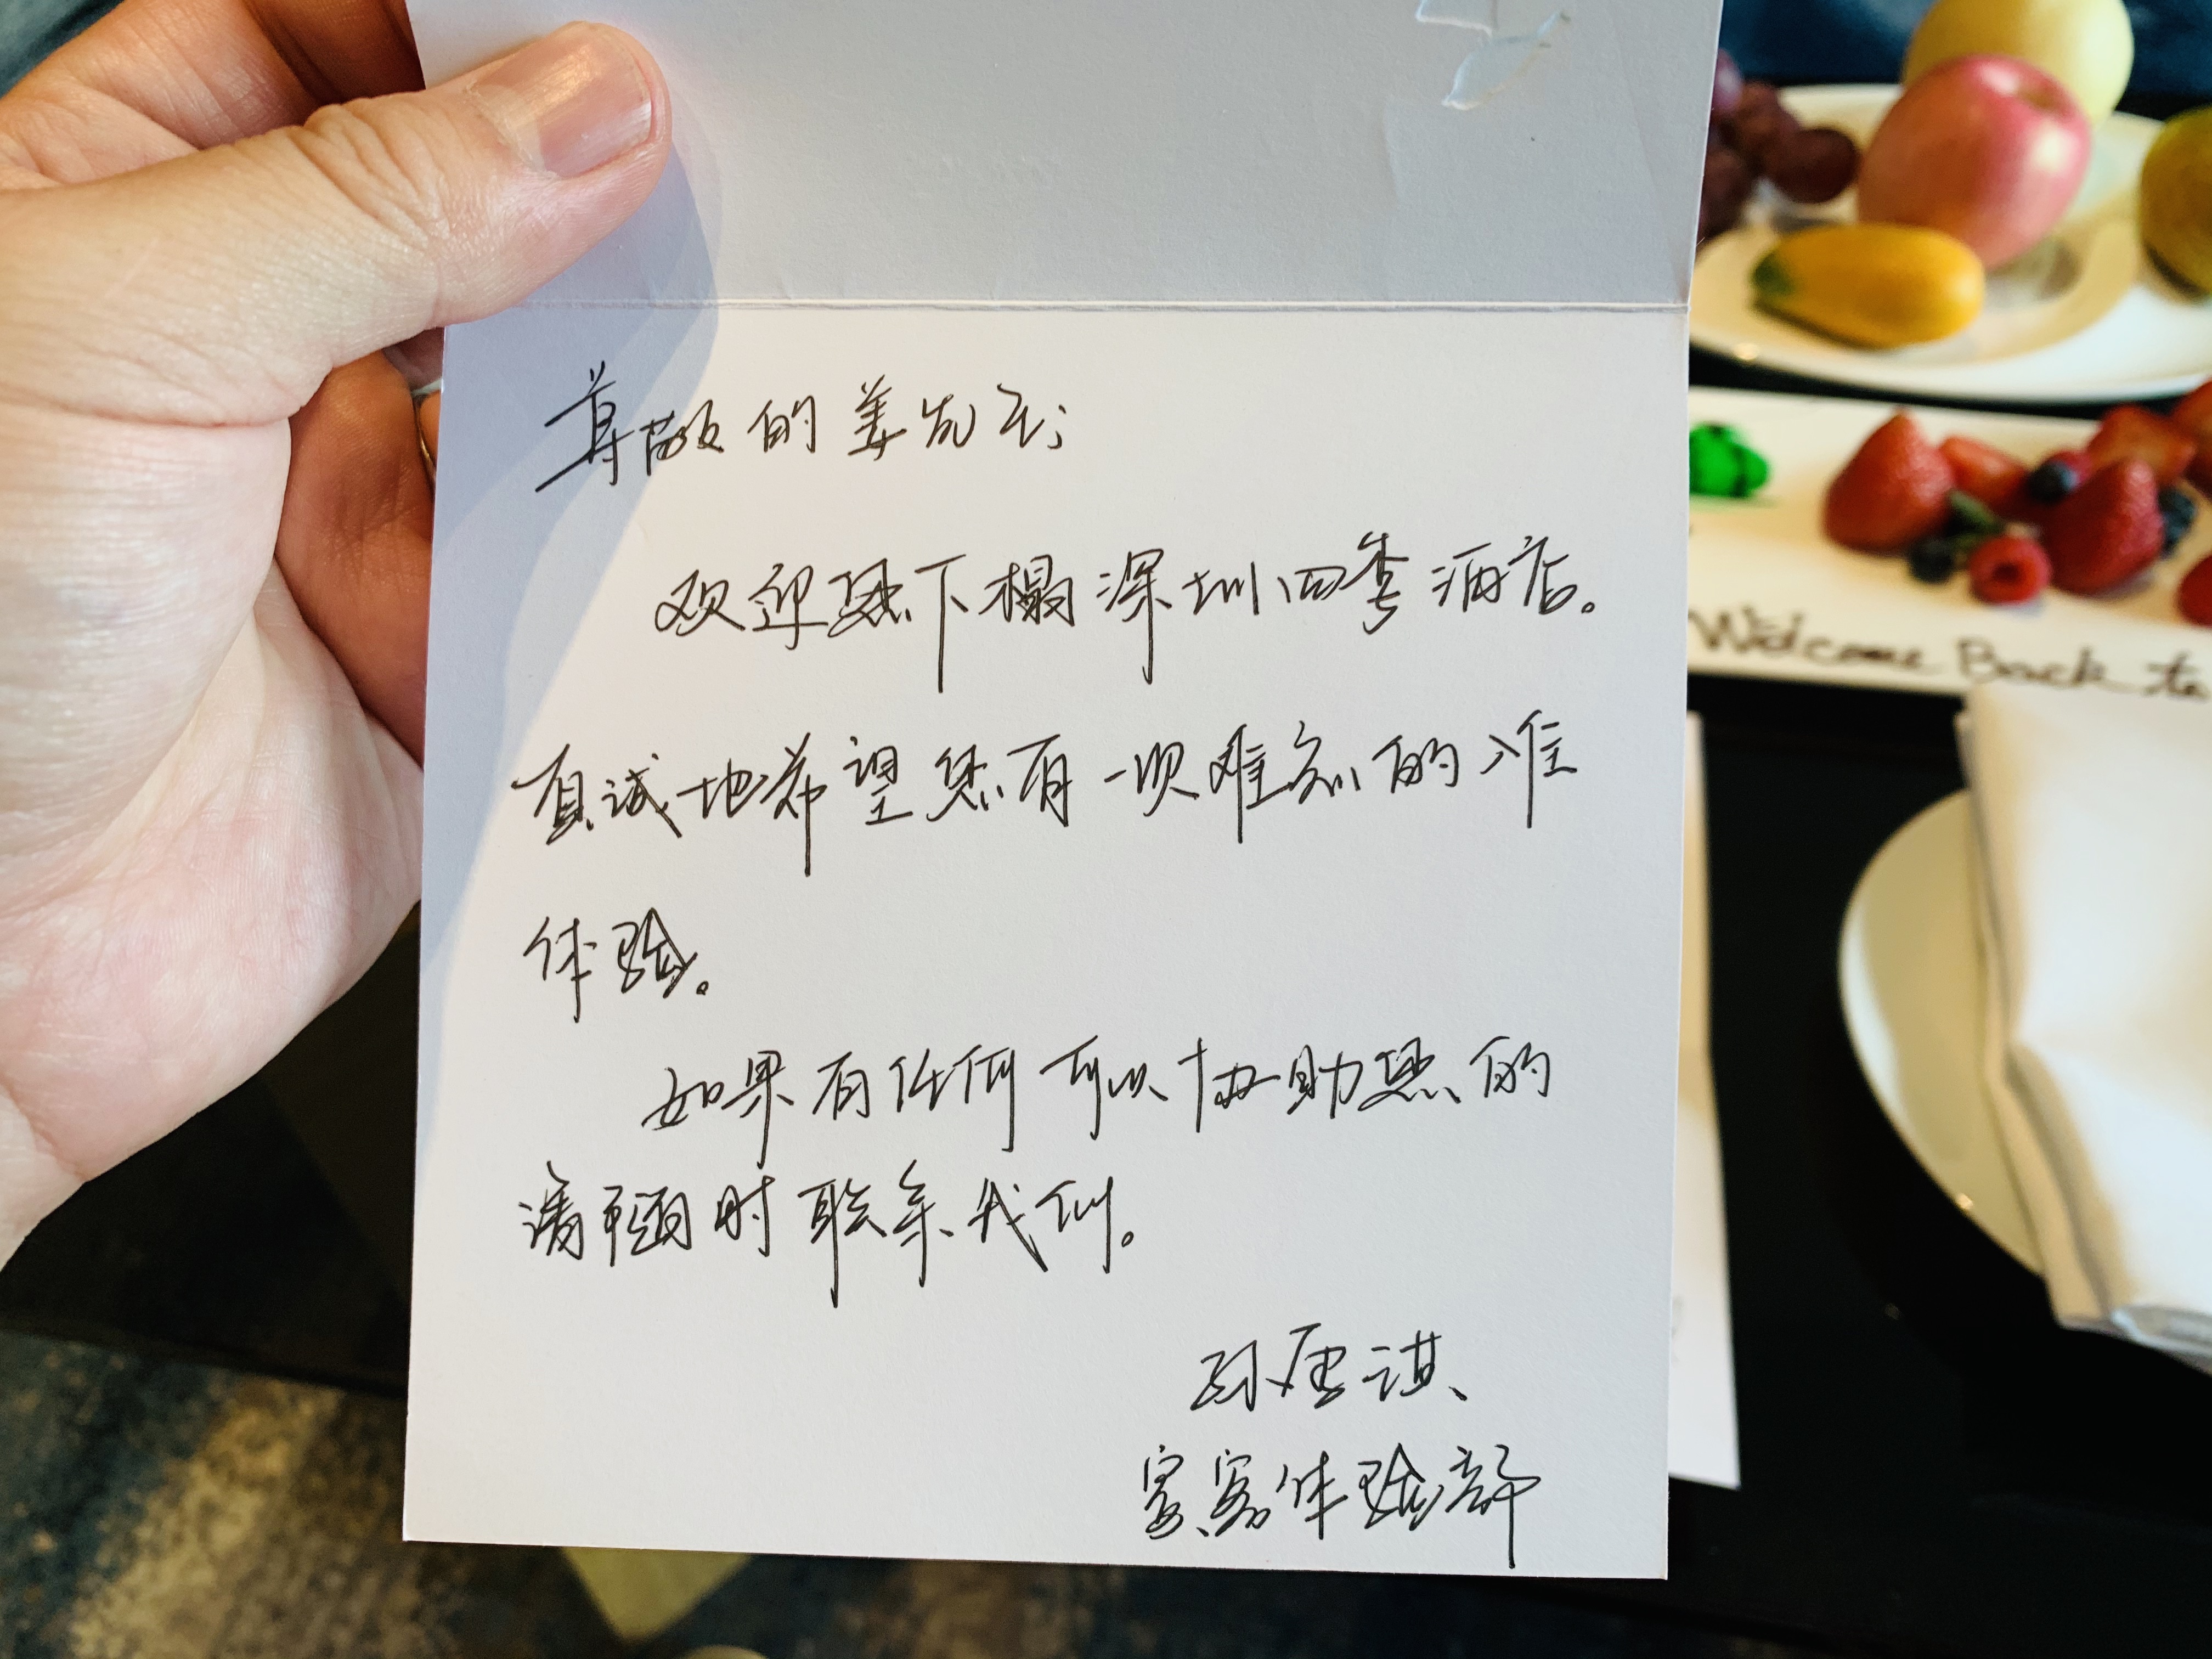 尊敬的姜先生：
欢迎您下榻深圳四季酒店。
真诚地希望您有一次难忘的入住
体验。
如果有任何可以协助您的
请随时联系我们。
孙
宾客体验部
Welcome Back to